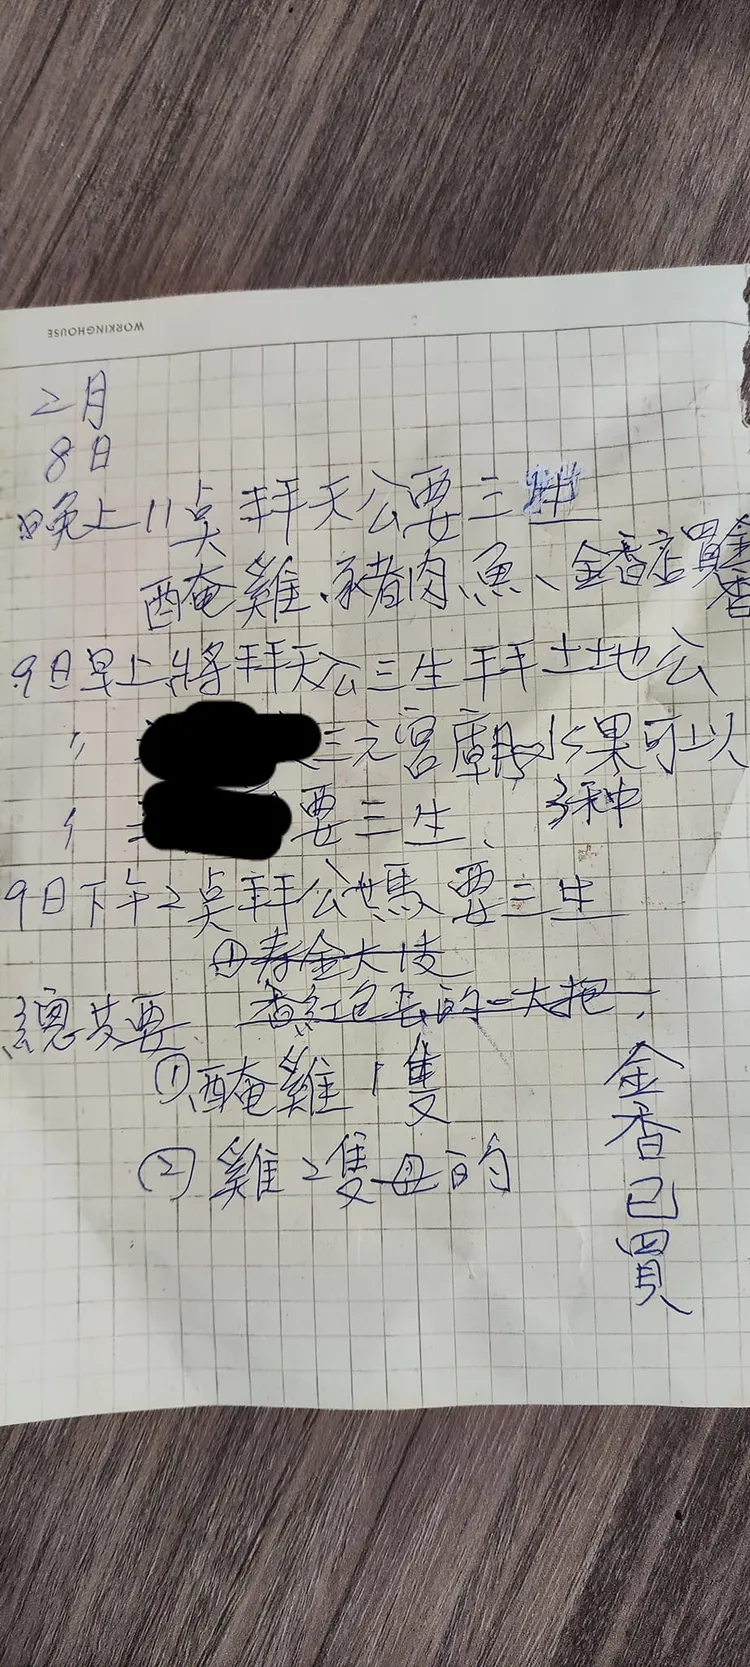 WORKINGHOUSE
2月
8日
晚上11点拜天公要三生
醃雞、豬肉、魚、金香店買金香
9日早上將拜天公三生拜土地公
〃 三元宮廟水果可以3种
〃 要三生、
9日下午2点拜公媽要三生
①寿金大
總共要 香紅包的一大把,
①醃雞1隻
②雞2隻母的
金香已買